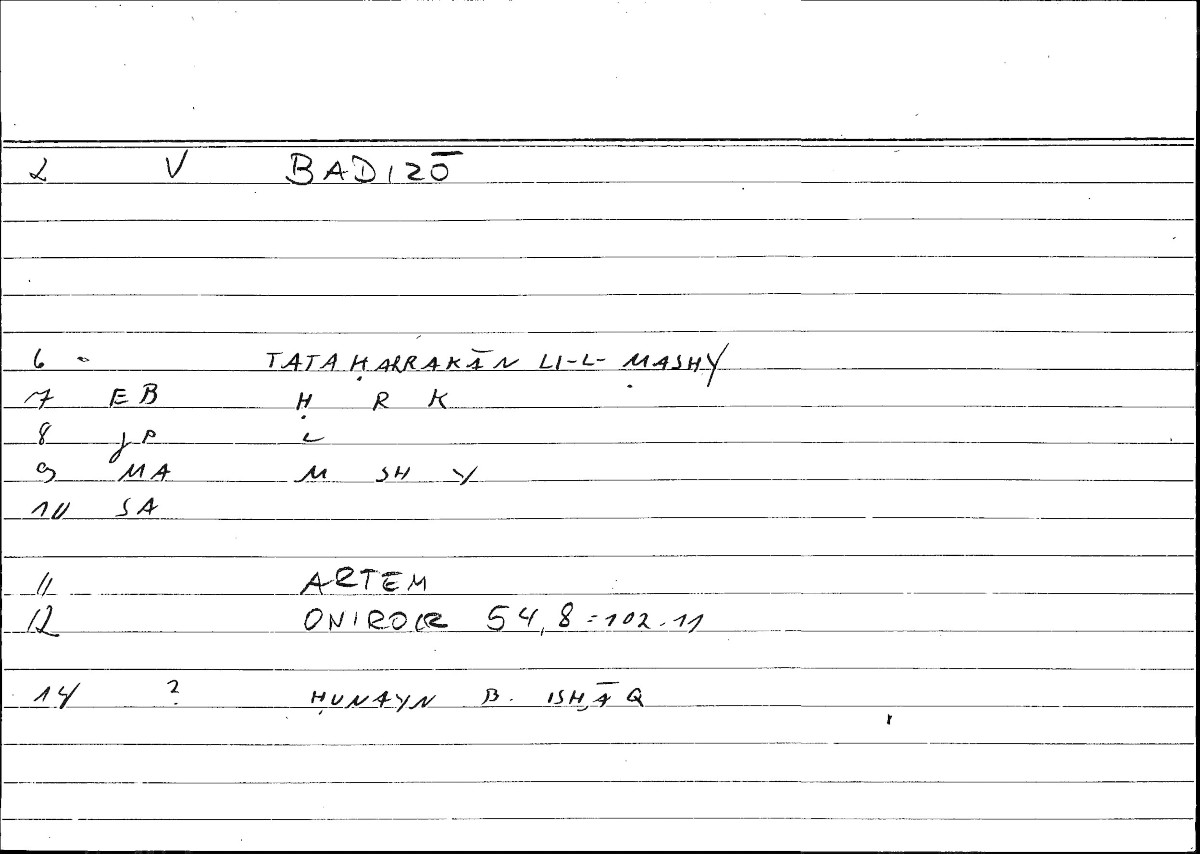 2 V BADIZŌ
6 - TATAḤARRAKĀN LI-L- MASHY
7 EB Ḥ R K
8 JP L
9 MA M SH Y
10 SA
11 ARTEM
12 ONIROCR 54,8=102.11
14 ? ḤUNAYN B. ISḤĀQ